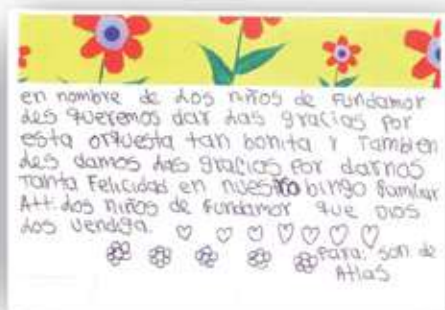 en nombre de los niños de Fundamor
les queremos dar las gracias por
esta orquesta tan bonita y Tambien
les damos las gracias por darnos
Tanta Felicidad en nuestro bingo Familiar
Att. los niños de Fundamor que Dios
los vendiga.
Para: son de
Atlas